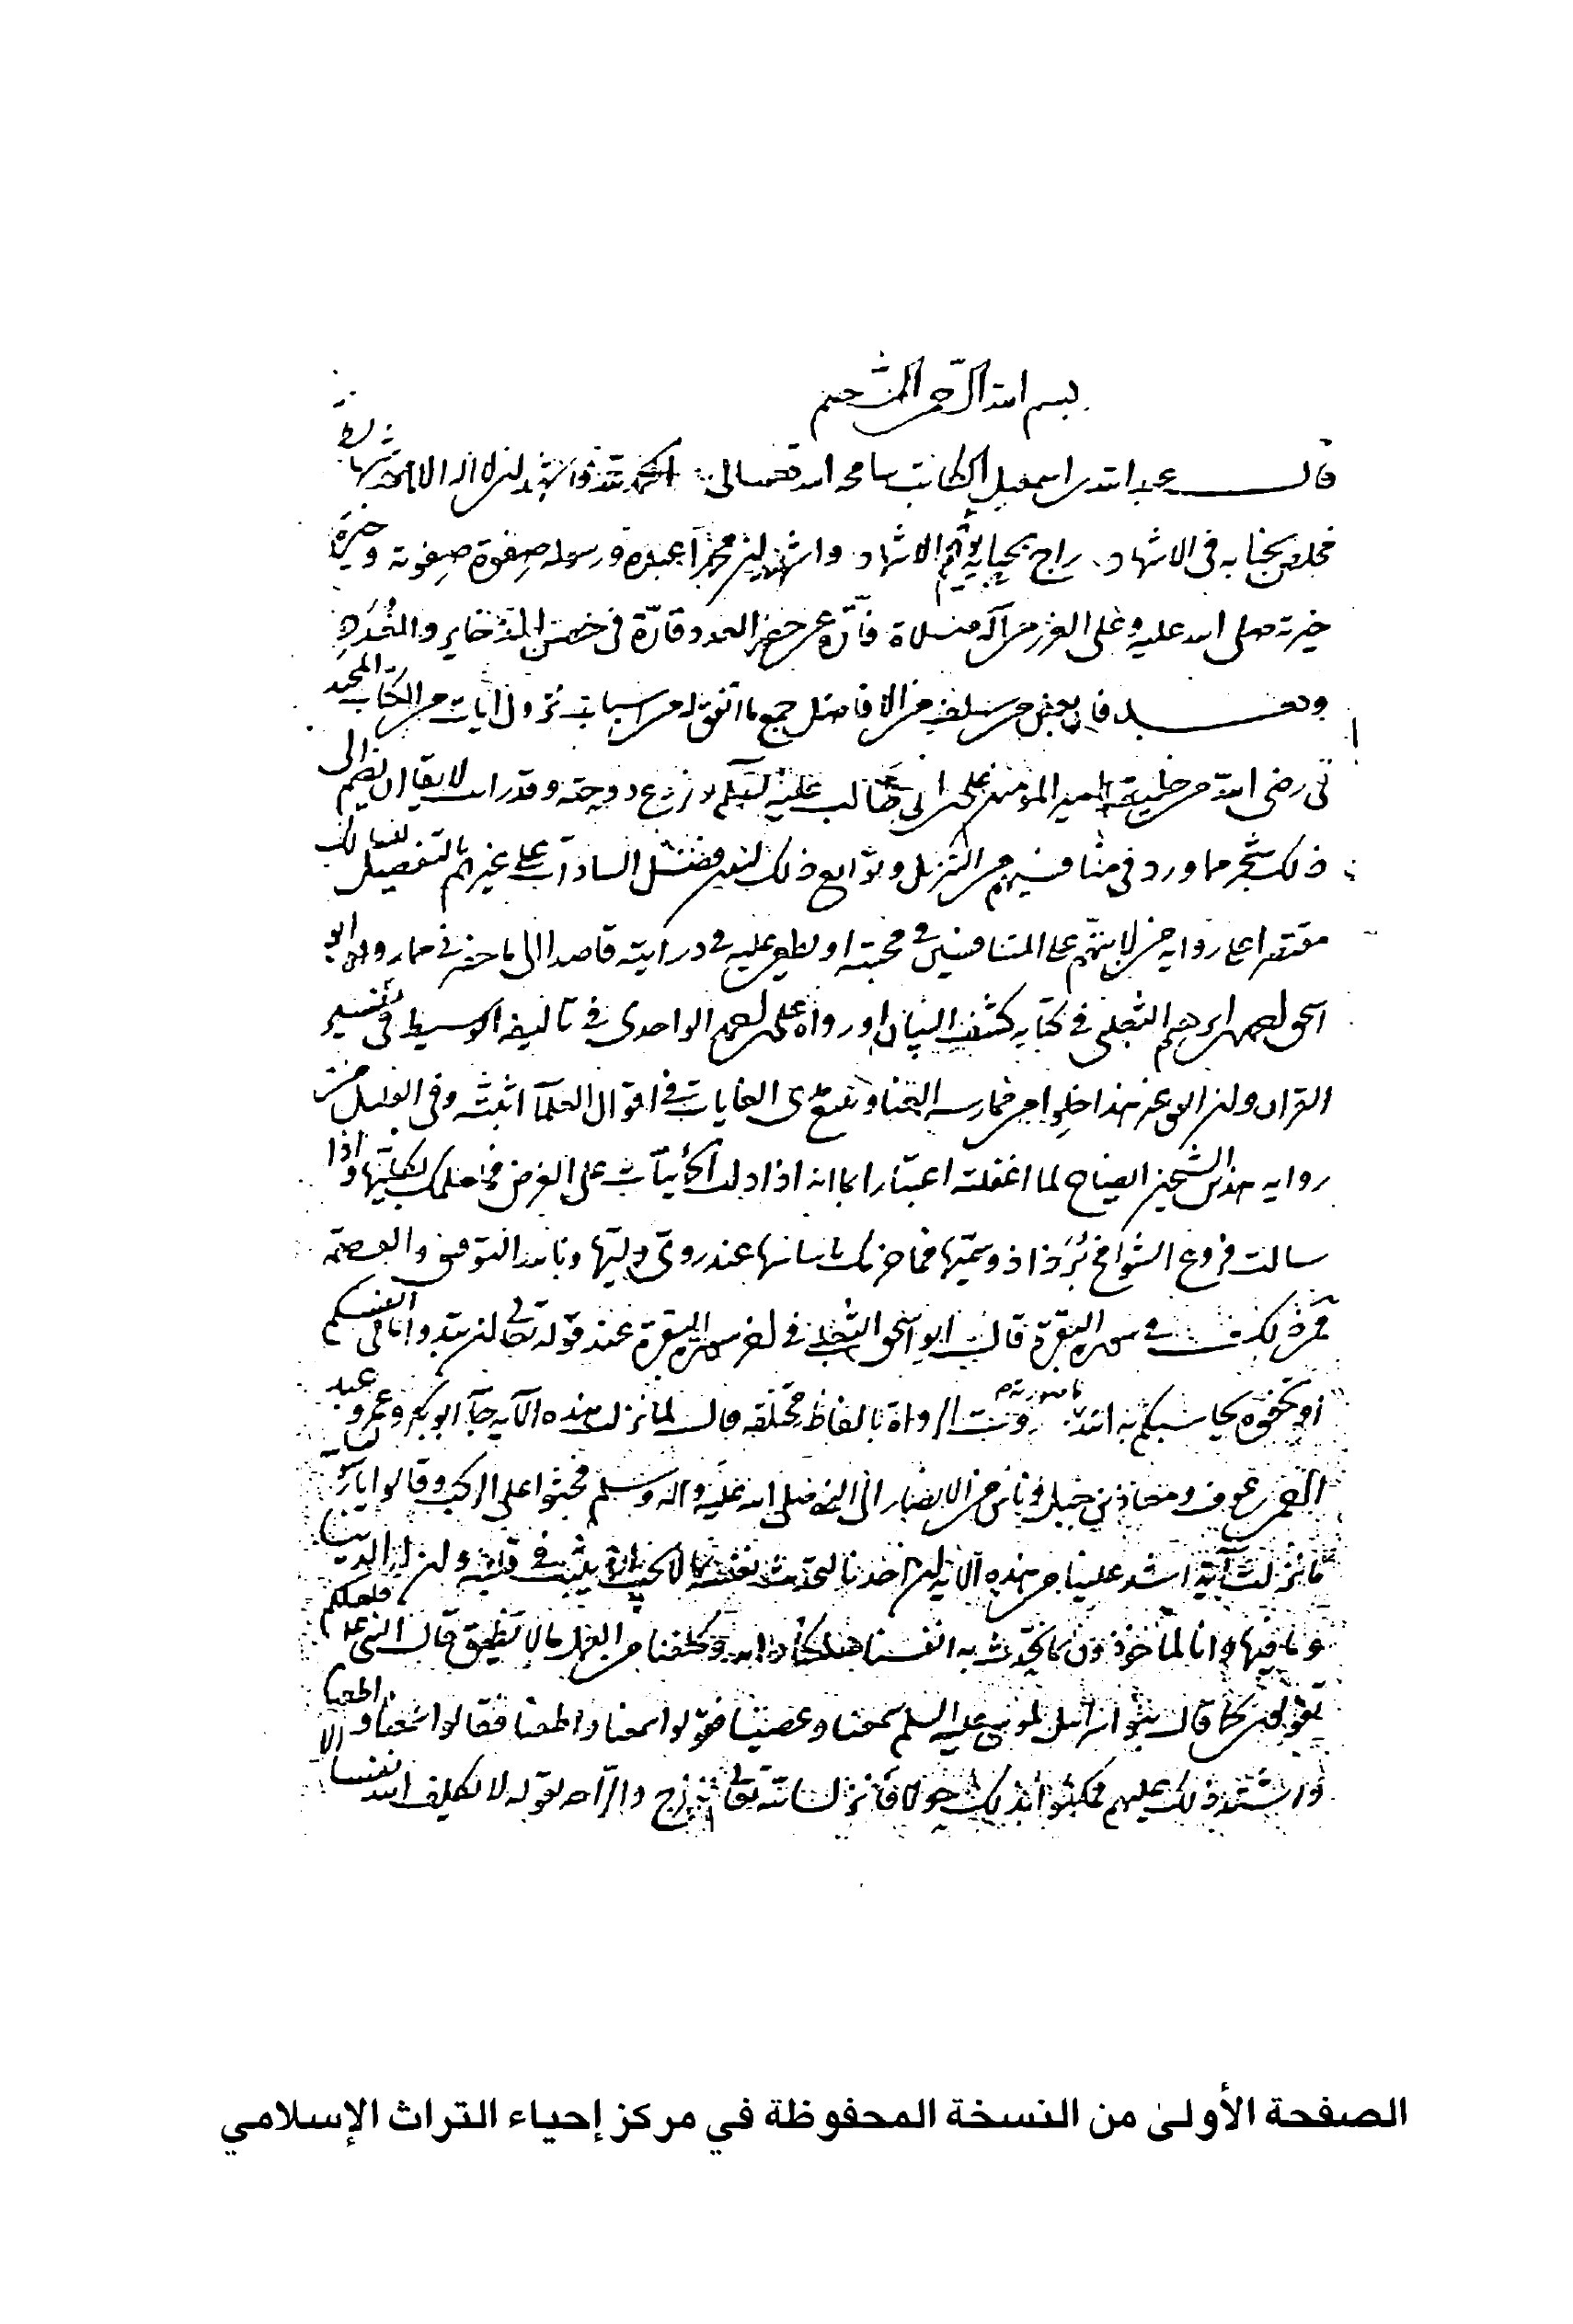 بسم الله الرحمن الرحيم
قال عبد الله بن اسمعيل الكاتب سامحه الله تعالى الحمد لله واشهد ان لا اله الا الله شهادة
مخلص بجنابه في الاشهاد راج بحبايه يوم الاشهاد واشهد ان محمدا عبده ورسوله صفوة صفوته وخيرة
خيرته صلى الله عليه وعلى الغرر من آله صلاة فارة عن حصر العدد قارة في خصائص الذخاير والعدد
وبعد فان بعض من سلف من الافاضل جمع ما اتفق له من اسباب نزول ايات من الكتاب المجيد
في رضى الله من خليقته امير المؤمنين علي بن ابي طالب عليه السلم و فروع دوحته وقد رايت لا بقا ان نضم الى
ذلك شجر مما ورد في مناقبهم من التنزيل وتوابع ذلك لتعين فضل السادات على غيرهم بالتفصيل
مقتصرا على رواية من لا يتهم على المتنافسين في محبته او يطعن عليه في درايته قاصدا الى ما حضرني مما رواه ابو
اسحق احمد بن ابرهيم الثعلبي في كتابه كشف البيان او رواه على بن احمد الواحدى في تاليفه الوسيط في تفسير
القران وان الف غير هذا خلوا من ممارسه العنا وتتبع مدى الغايات في اقوال العلما اثبته وفي القليل من
رواية هذين الشيخين ايضاح لما اغفلته اعتبارا بما انه اذا دلت الابيات على الغرض فما عملك بكليتها واذا
سالت فروع الشوامخ
فمن ذلك في سورة البقرة قال ابو اسحق الثعلبي في اخر سورة البقرة عند قوله تعالى ان تبدوا ما في انفسكم
او تخفوه يحاسبكم به الله روت الرواة بالفاظ مختلفه قال لما نزلت هذه الآيه جآ ابو بكر وعمر وعبد
الرحمن بن عوف ومعاذ بن جبل وناس من الانصار الى النبي صلى الله عليه وآله وسلم فجثوا على الركب وقالوا يا رسول الله
ما نزلت آية اشد علينا من هذه الآية ان احدنا ليحدث نفسه بما لا يحب ان يثبت في قلبه وان له الدنيا
وما فيها وانا لمأخوذون بما نحدث به انفسنا هلكنا والله وكلفنا من العمل ما لا نطيق قال النبي فلعلكم
تقولون كما قال بنو اسرائيل لموسى عليه السلم سمعنا وعصينا قولوا سمعنا واطعنا فقالوا سمعنا واطعنا
واشتد ذلك عليهم فمكثوا بذلك حولا فانزل الله تعالى الفرج والراحه بقوله لا يكلف الله نفسا الا
الصفحة الأولىٰ من النسخة المحفوظة في مركز إحياء التراث الإسلامي